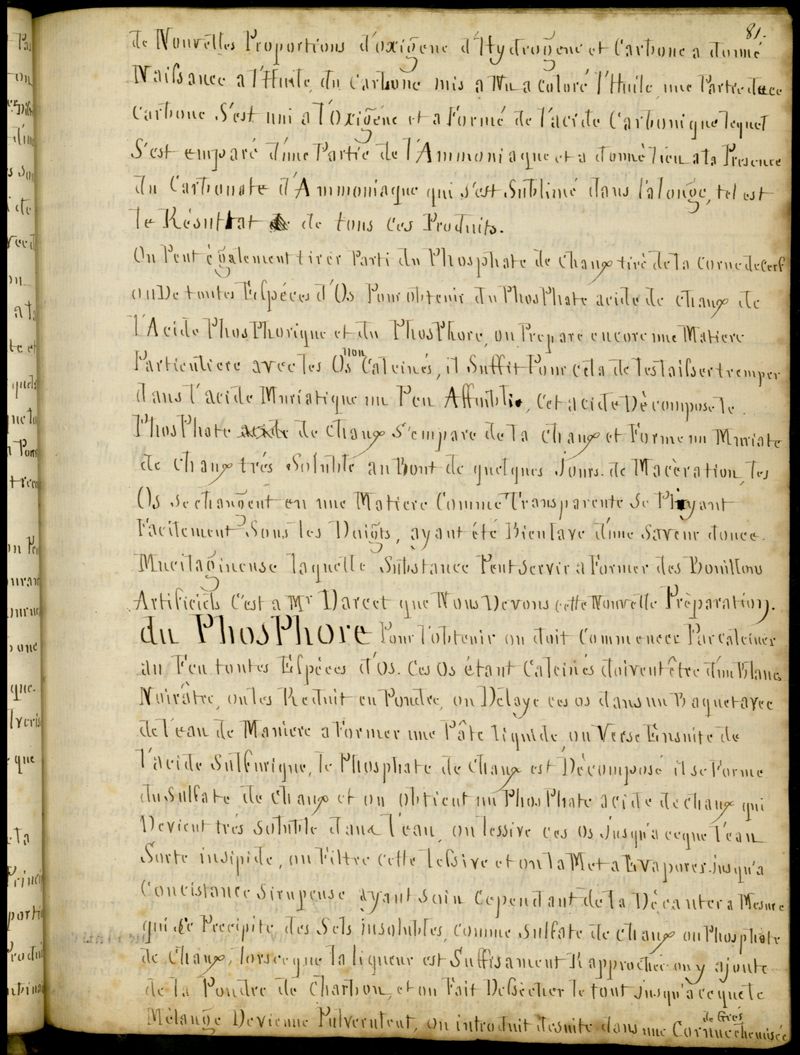 81.
de Nouvelles Proportions d'oxigene d'Hydrogene et Carbone a donné
Naissance a l'Huile, du Carbone mis a Nu a coloré l'Huile, une Partie du ce
Carbone S'est uni a l'Oxigéne et a Formé de l'acide Carbonique lequel
S'est emparé d'une Partie de l'Ammoniaque et a donné lieu a la Presence
du Carbonate d'Ammoniaque qui s'est Sublimé dans l'alonge, tel est
le Résultat de tous ces Produits.
On Peut égalem​ent tirer Parti du Phosphate de Chaux tiré de la Corne de Cerf
ou De toutes Espéces d'Os Pour obtenir du Phosphate acide de chaux de
l'Acide Phosphorique et du Phosphore, on Prepare encore une Matiere
Particuliere avec les Os non Calcinés, il Suffit Pour cela de les laisser tremper
dans l'acide Muriatique un Peu Affaibli, Cet acide Décompose le
Phosphate de chaux S'empare de la chaux et Forme un Muriate
de chaux trés Soluble au Bout de quelques Jours de Macération, les
Os se changent en une Matiere Comme Transparente se Pliyant
Facilement Sous les Doigts, ayant été Bien lavé d'une Saveur douce
Mucilagineuse laquelle Substance Peut Servir a Former des Bouillons
Artificiels C'est a Mr Darcet que Nous Devons cette Nouvelle Préparation.
du Phosphore Pour l'obtenir on doit Commencer Par calciner
au Feu toutes Espéces d'Os. Ces Os étant Calcinés doivent être d'un Blanc
Noirâtre, on les Reduit en Poudre, on Délaye ces os dans un Baquet avec
de l'eau de Maniere a Former une Pâte liquide, on Verse Ensuite de
l'acide Sulfurique, le Phosphate de Chaux est Décomposé il se Forme
du Sulfate de chaux et on obtient un Phosphate acide de chaux qui
Devient trés soluble dans l'eau, on lessive ces os jusqu'a ce que l'eau
Sorte insipide, on Filtre cette lessive et on la Met a Evaporer jusqu'a
Concistance Sirupeuse ayant soin Cependant de la Décanter a Mesure
qui se Precipite des Sels insolubles, comme Sulfate de chaux ou Phosphate
de chaux, lorsceque la liqueur est Suffisament Rapprochée on y ajoute
de la Poudre de Charbon, et on Fait Dessecher le tout jusqu'a ce que le
Mélange Devienne Pulverulent, on introduit ensuite dans une Cornue de Grès chemisée